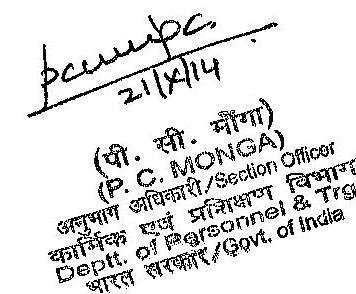 21/X/14
(पी. सी. मोंगा)
(P. C. MONGA)
अनुभाग अधिकारी/Section Officer
कार्मिक एवं प्रशिक्षण विभाग
Deptt. of Personnel & Trg
भारत सरकार/Govt. of India